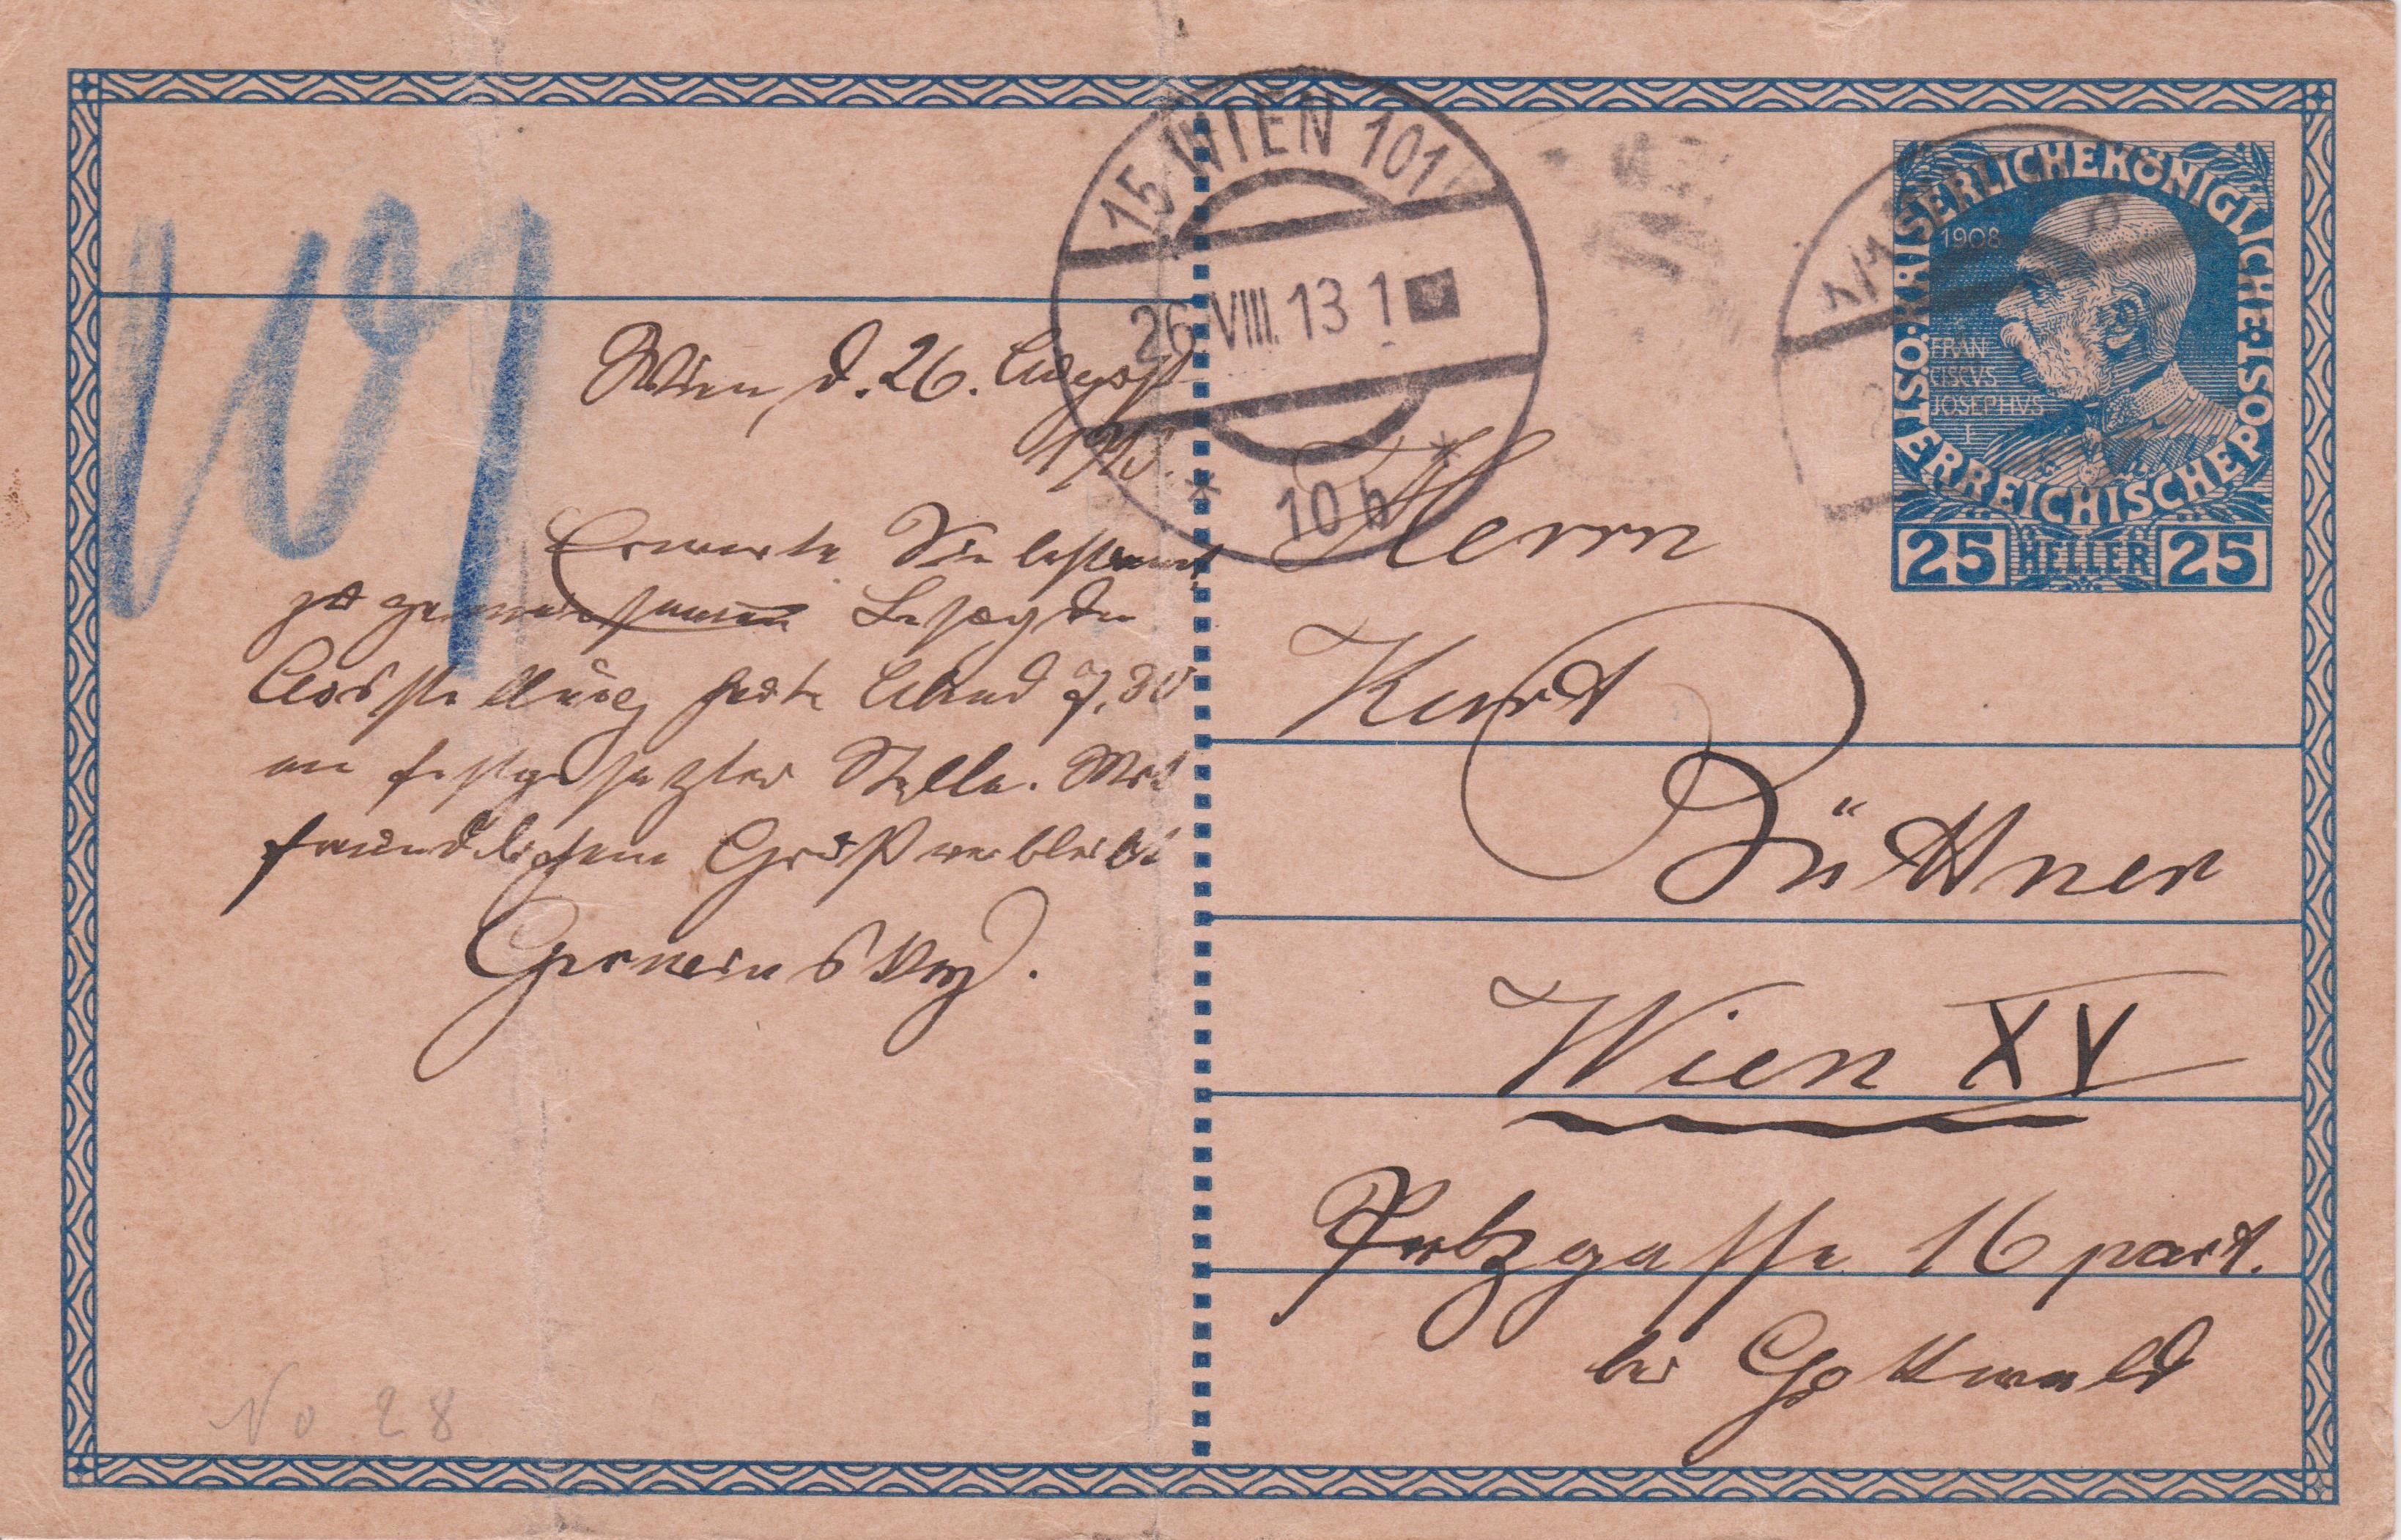 109
15 WIEN 101
26 VIII. 13 1
* 10 h *
KAISERLICHE KÖNIGLICHE
ÖSTERREICHISCHE POST
1908
FRAN
CISCVS
JOSEPHVS
I
25 HELLER 25
Wien, d. 26. August
1913.
Erwarte Sie bestimmt
zu gemeinsamen
Ausstellung heute Abend 7,30
an festgesetzter Stelle. Mit
freundlichem Gruß verbleibt
Herrn
Kurt
Büttner
Wien XV
Pelzgasse 16 part.
bei Gottwald
No 28